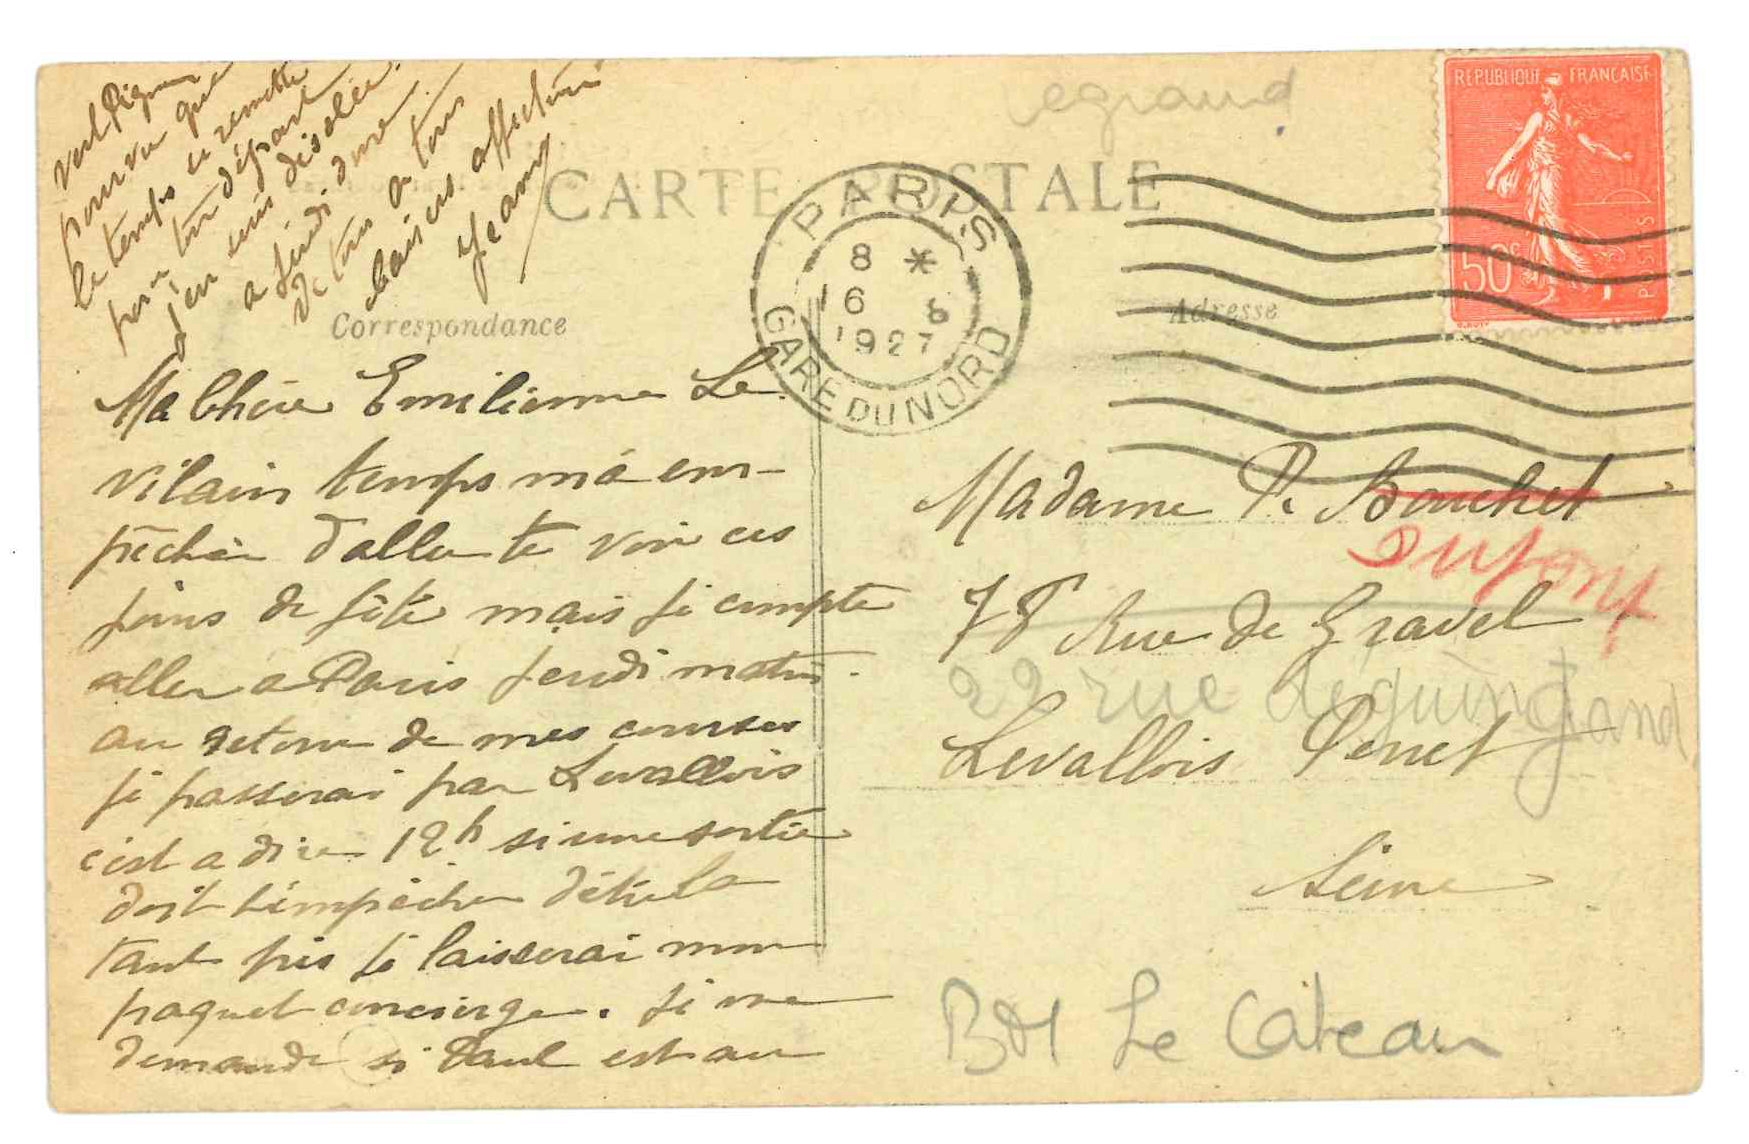 CARTE POSTALE
Correspondance
Adresse
REPUBLIQUE FRANÇAISE
50c
POSTES
PARIS
8 *
16 8
1927
GARE DU NORD
Ma Chère Emilienne Le
vilain temps m'a em-
pêcher d'aller te voir ces
jours de fête mais je compte
aller a Paris Jeudi matin.
au retour de mes courses
je passerai par Levallois
c'est a dire 12h si une sortie
doit t'empêcher d'être la
tant pis je laisserai mon
paquet concierge. Je me
demande si Paul est au
pourvu que
le temps ce remette
pour ton départ
j'en suis désolée.
a Jeudi donc
de tous a tous
baisers affectueux
Jeanne
Madame P. Bouchet
Dupont
78 Rue de Gravel
22 rue deguingand
Levallois Perret
Seine
legrand
BM Le Cateau